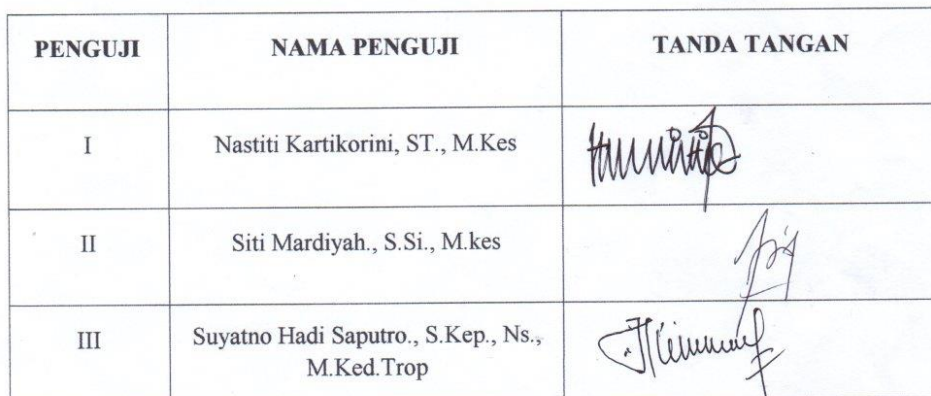 PENGUJI NAMA PENGUJI TANDA TANGAN
I Nastiti Kartikorini, ST., M.Kes
II Siti Mardiyah., S.Si., M.kes
III Suyatno Hadi Saputro., S.Kep., Ns.,
M.Ked.Trop